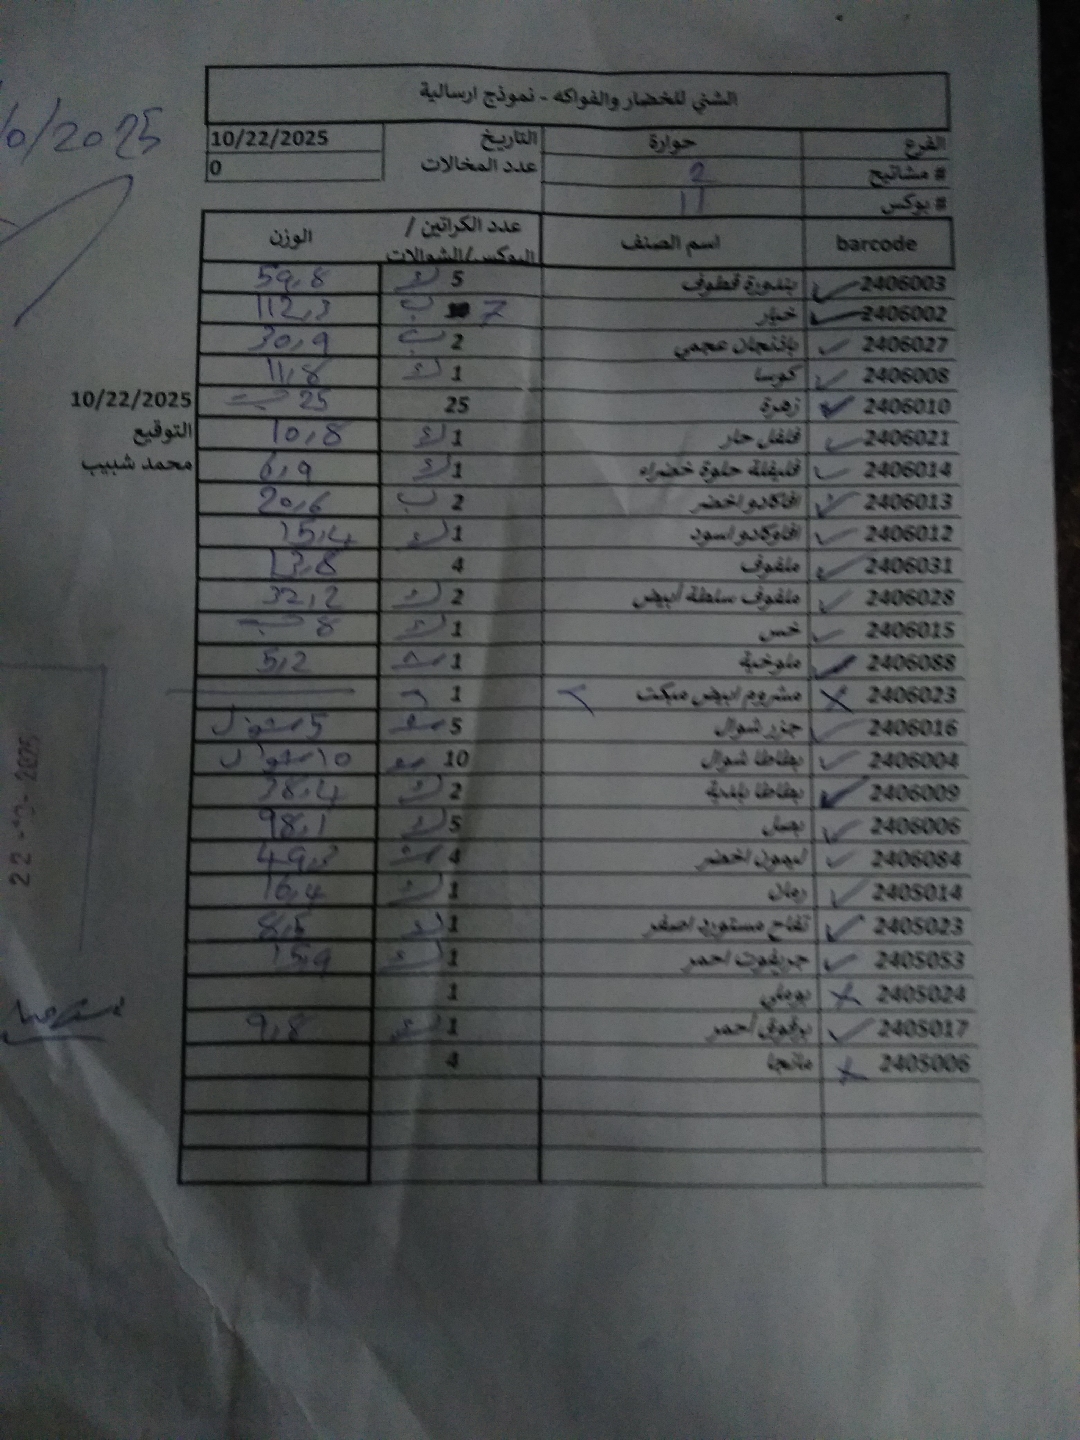 الشني للخضار والفواكه - نموذج ارسالية
الفرع حوارة التاريخ 10/22/2025
# مشاتيح 2 عدد المخالات 0
# بوكس 11
barcode اسم الصنف عدد الكراتين / البوكس/الشوالات الوزن
2406003 بندورة قطوف 5 59,8
2406002 خيار 7 112,3
2406027 باذنجان عجمي 2 30,9
2406008 كوسا 1 11,8
2406010 زهرة 25 25
2406021 فلفل حار 1 10,8
2406014 فليفلة حلوة خضراء 1 6,9
2406013 افاكادو اخضر 2 20,6
2406012 افاوكادو اسود 1 15,4
2406031 ملفوف 4 13,8
2406028 ملفوف سلطة أبيض 2 32,2
2406015 خس 1 8
2406088 ملوخية 1 5,2
2406023 مشروم ابيض مبكت 1
2406016 جزر شوال 5 5 شوال
2406004 بطاطا شوال 10 10 شوال
2406009 بطاطا بلدية 2 38,4
2406006 بصل 5 98,1
2406084 ليمون اخضر 4 49,3
2405014 رمان 1 16,4
2405023 تفاح مستورد اصفر 1 8,5
2405053 جريفوت احمر 1 15,9
2405024 بوملي 1
2405017 برقوق أحمر 1 9,8
2405006 مانجا 4
10/22/2025
التوقيع
محمد شبيب
0/2025